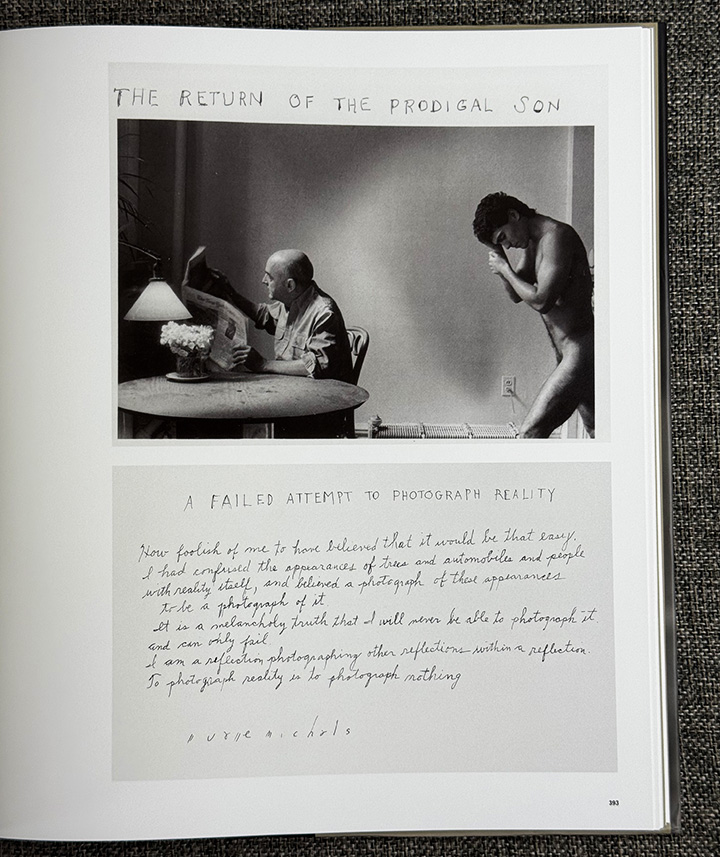 THE RETURN OF THE PRODIGAL SON
A FAILED ATTEMPT TO PHOTOGRAPH REALITY
How foolish of me to have believed that it would be that easy.
I had confused the appearances of trees and automobiles and people
with reality itself, and believed a photograph of these appearances
to be a photograph of it
It is a melancholy truth that I will never be able to photograph it
and can only fail
I am a reflection photographing other reflections within a reflection.
To photograph reality is to photograph nothing
393